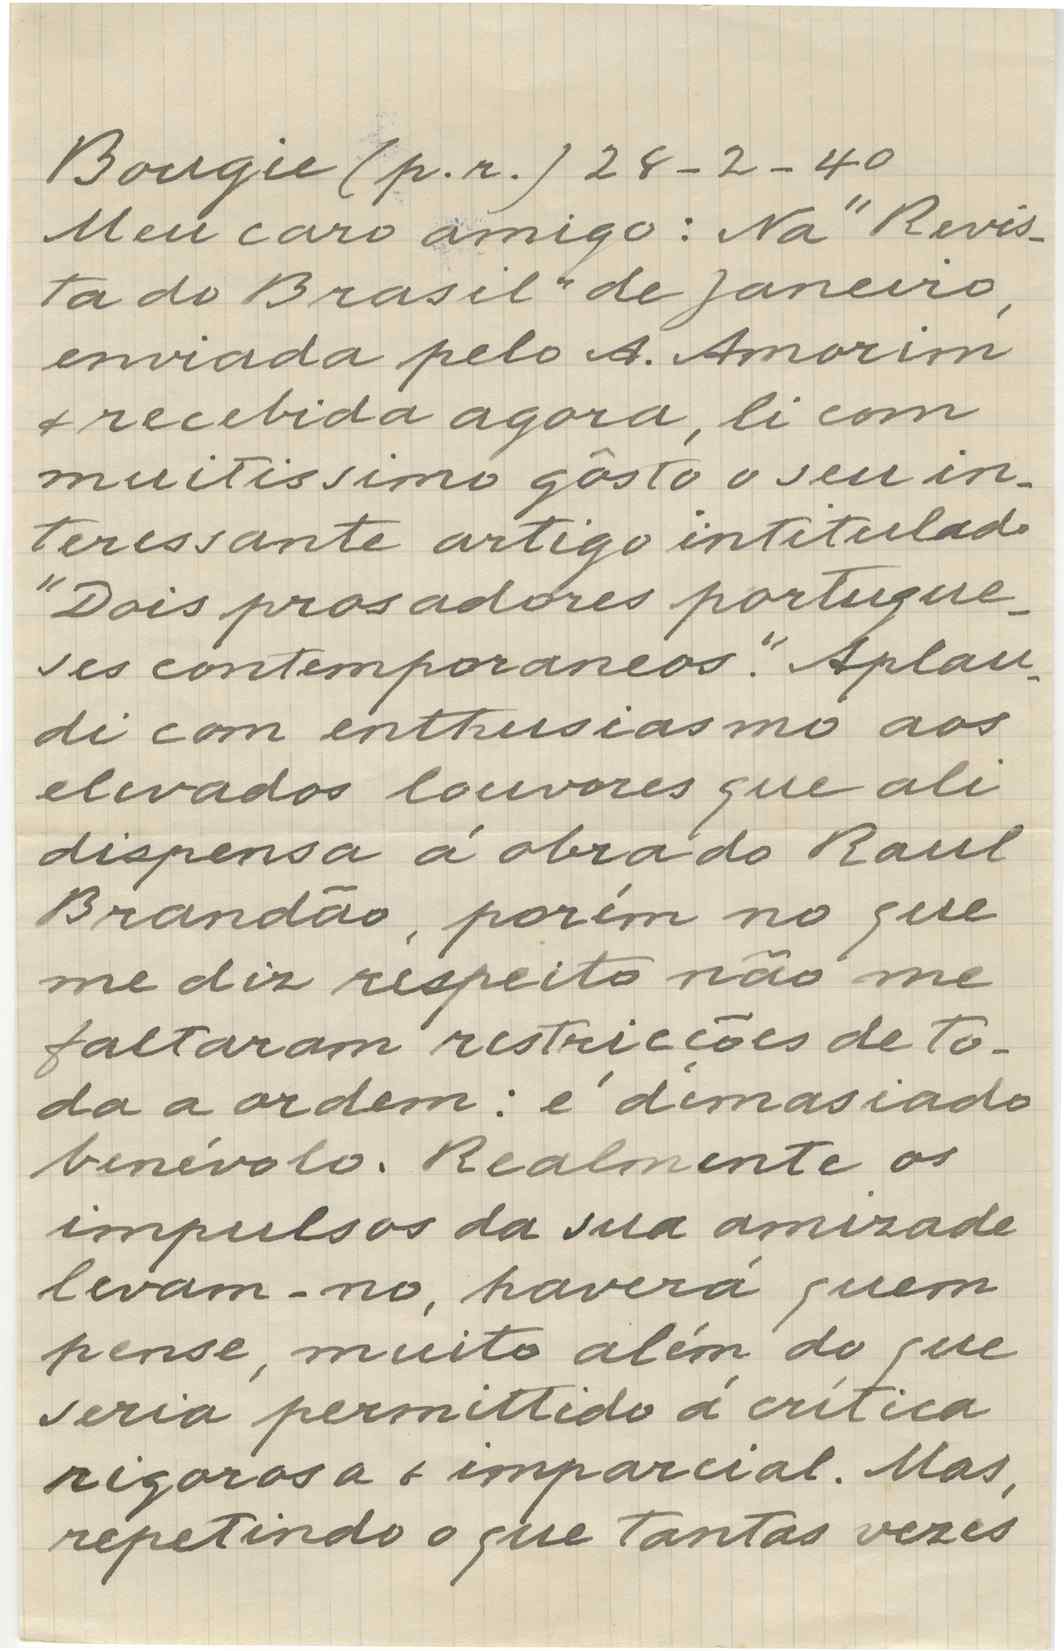 Bougie (p.r.) 28-2-40
Meu caro amigo: Na "Revis-
ta do Brasil" de Janeiro,
enviada pelo A. Amorim
& recebida agora, li com
muitissimo gôsto o seu in-
teressante artigo intitulado
"Dois prosadores portugue-
ses contemporaneos". Aplau-
di com enthusiasmo aos
elevados louvores que ali
dispensa á obra do Raul
Brandão, porém no que
me diz respeito não me
faltaram restricções de to-
da a ordem: é demasiado
benévolo. Realmente os
impulsos da sua amizade
levam-no, haverá quem
pense, muito além do que
seria permittido á crítica
rigorosa & imparcial. Mas,
repetindo o que tantas vezes